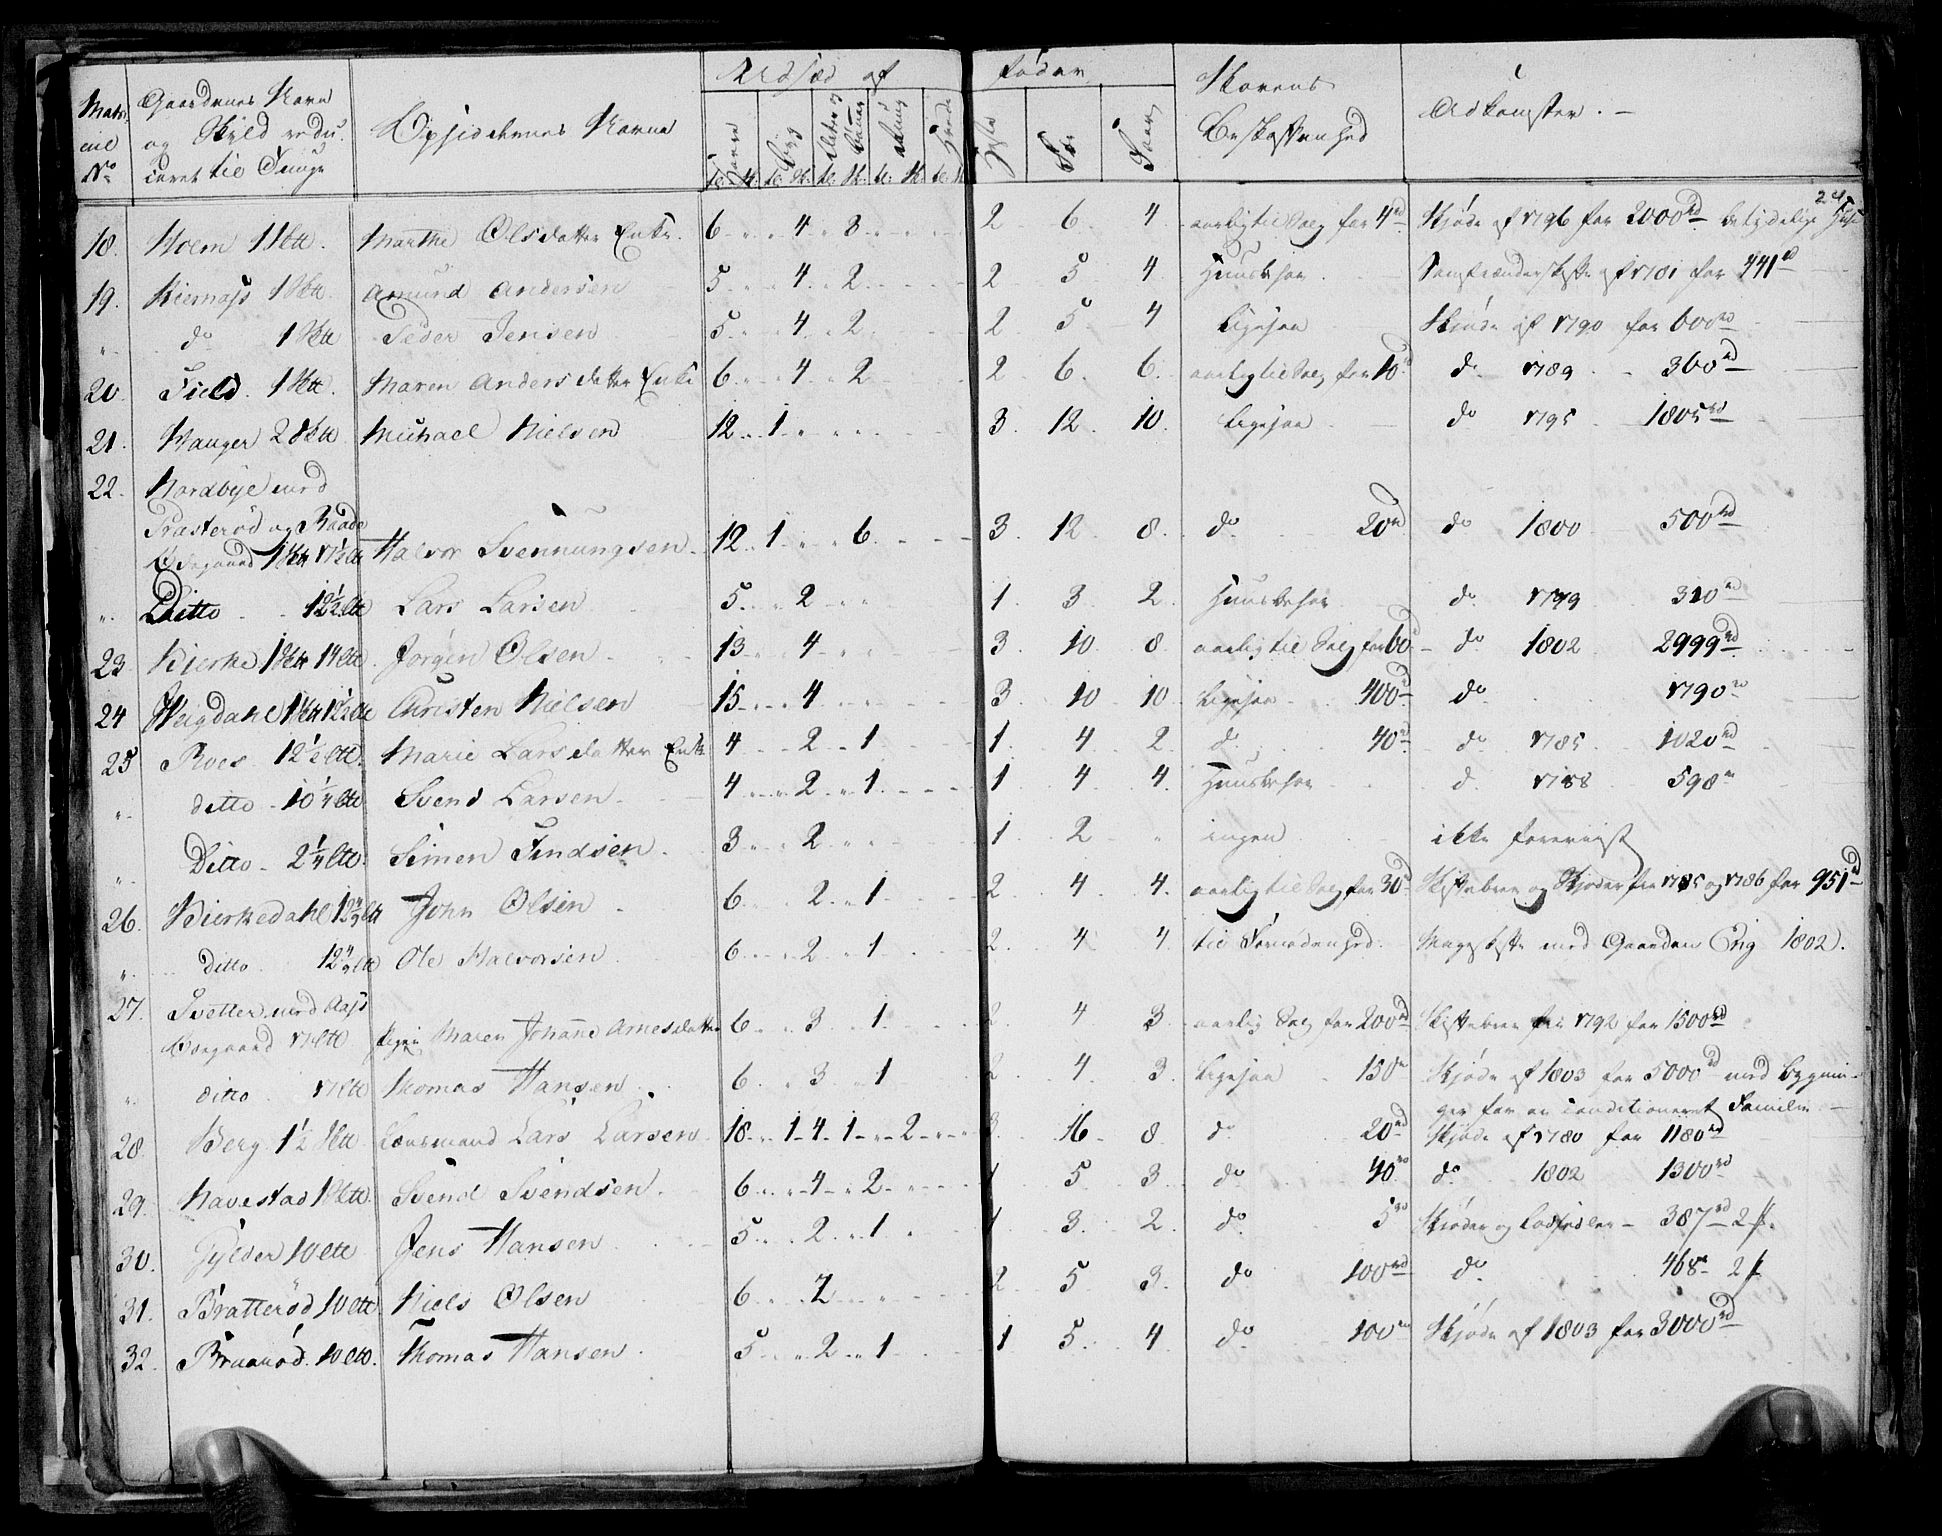 Udsæd af föder
Matr: Gaardenes Navn Opsiddernes Navne Skovens Adkomster. -
icul og Skyld redu: Beskaffenhed
No ceret til Tunge Havre Byg Heste Faar
18. Holm 1 Sktt. Marthe Olsdatter Enke. 6 4 3 2 6 4 aarlig til Salg for 4 rd Skjöde af 1796 for 2000 rd betydelige
19. Kiernass 1 Sktt. Amund Andersen 5 4 2 2 5 4 Huusbehov af 1781 for 441 rd
" do 1 Sktt Peder Jensen 5 4 2 2 5 4 Ligesaa Skjöde af 1790 for 600 rd
20. Field. 1 Sktt. Maren Andersdatter Enke 6 4 2 2 6 6 aarlig til Salg for 10 rd do 1789 360 rd
21. Hauger 2 Sktt Michael Nielsen 12 1 3 12 10 Ligesaa do 1795 1805 rd
22. Nordbye med
Prasteröd og Raade
Ödegaard 1 Sktt 17½ ltt Halvor Svennungsen 12 1 6 3 12 8 do 20 rd do 1800 500 rd
" Ditto 12½ ltt Lars Larsen 5 2 1 3 2 Huusbehov do 1799 310 rd
23. Kierke 1 Sktt 14 ltt Jörgen Olsen 13 4 3 10 8 aarlig til Salg for 60 rd do 1802 2999 rd
24 Weigdahl 1 Sktt 1½ ltt Christen Nielsen 15 4 3 10 10 Ligesaa 400 rd do 1790 rd
25 Roes 12½ ltt. Marie Larsdatter Enke 4 2 1 1 4 2 do 40 rd do 1785 1020 rd
" ditto 10¼ ltt Svend Larsen 4 2 1 1 4 4 Huusbehov do 1788 598 rd
" Ditto 2¼ ltt. Simen Findsen 3 2 1 2 " ingen ikke foreviist
26. Bierkedahl 12 ltt John Olsen 6 2 1 2 4 4 aarlig til Salg for 30 rd Skiftebrev og Skjöder fra 1785 og 1786 for 951 rd
" ditto 12 ltt Ole Halvorsen 6 2 1 2 4 4 til Fornödenhed. Mageskifte med Gaarden Eng 1802.
27. Tvetter med Aas
Ödegaard 17 ltt Pigen Maren Johanne Arnesdatter 6 3 1 2 4 3 aarlig Salg for 200 rd Skiftebrev fra 1792 for 1500 rd
" ditto 17 ltt Thomas Hansen 6 3 1 2 4 3 Ligesaa 150 rd Skjöde af 1803 for 5000 rd med bygnin-
ger for en conditioneret Familie
28. Berg 1½ Sktt Lænsmand Lars Larsen 18 1 4 1 2 3 16 8 do 20 rd Skjöde af 1780 for 1180 rd
29. Navestad 1 Sktt. Svend Svendsen 6 4 2 1 5 3 do 40 rd do 1802 1300 rd
30. Gylder 10 ltt Jens Hansen 5 2 1 1 3 2 do 5 rd Skjöder og 387 rd 2 f.
31. Bratteröd 10 ltt Niels Olsen 6 2 2 5 3 do 100 rd do 468 rd 2 f
32. Bruuröd 10 ltt. Thomas Hansen 5 2 1 1 5 4 do 100 rd Skjöde af 1803 for 3000 rd